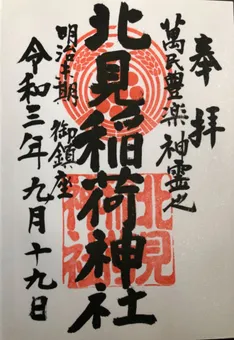 奉拝
萬民豊楽 神霊之
北見稲荷神社
明治早期 御鎮座
令和三年九月十九日
北見
稲荷
神社